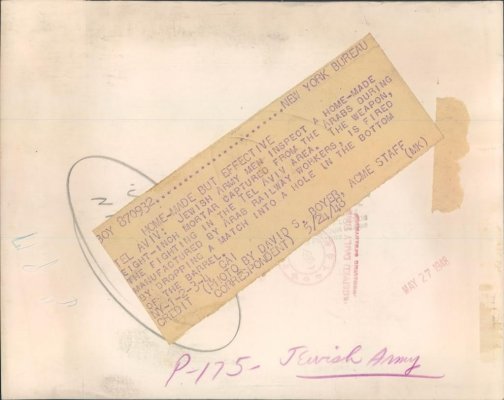 BOY 870932............NEW YORK BUREAU
HOME-MADE BUT EFFECTIVE
TEL AVIV: JEWISH ARMY MEN INSPECT A HOME-MADE
EIGHT-INCH MORTAR CAPTURED FROM THE ARABS DURING
THE FIGHTING IN THE TEL AVIV AREA. THE WEAPON,
MANUFACTURED BY ARAB RAILWAY WORKERS, IS FIRED
BY DROPPING A MATCH INTO A HOLE IN THE BOTTOM
OF THE BARREL.
CREDIT (PHOTO BY DAVID S. BOYER, ACME STAFF
CORRESPONDENT) 5/21/48 (MK)
MAY 27 1948
P-175- Jewish Army